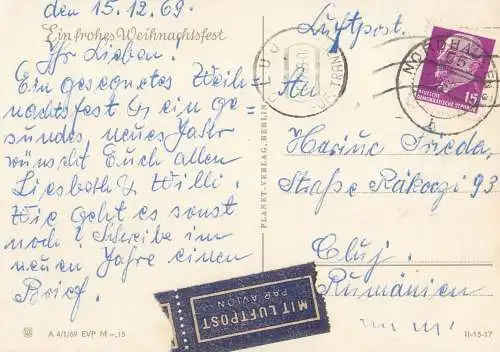 den 15.12.69.
Ein frohes Weihnachtsfest
Ihr Lieben!
Ein gesegnetes Weih-
nachtsfest & ein ge-
sundes neues Jahr
wünscht Euch allen
Liesbeth & Willi.
Wie geht es sonst
noch? Schreibe im
neuen Jahre einen
Brief.
A 4/1/69 EVP M -,15
PLANET-VERLAG, BERLIN
Luftpost.
CLUJ
NORDHA
15
DEUTSCHE
DEMOKRATISCHE REPUBLIK
An
Frieda,
Straße Rákoczi 93
Cluj.
Rumänien
MIT LUFTPOST
PAR AVION
II-15-17